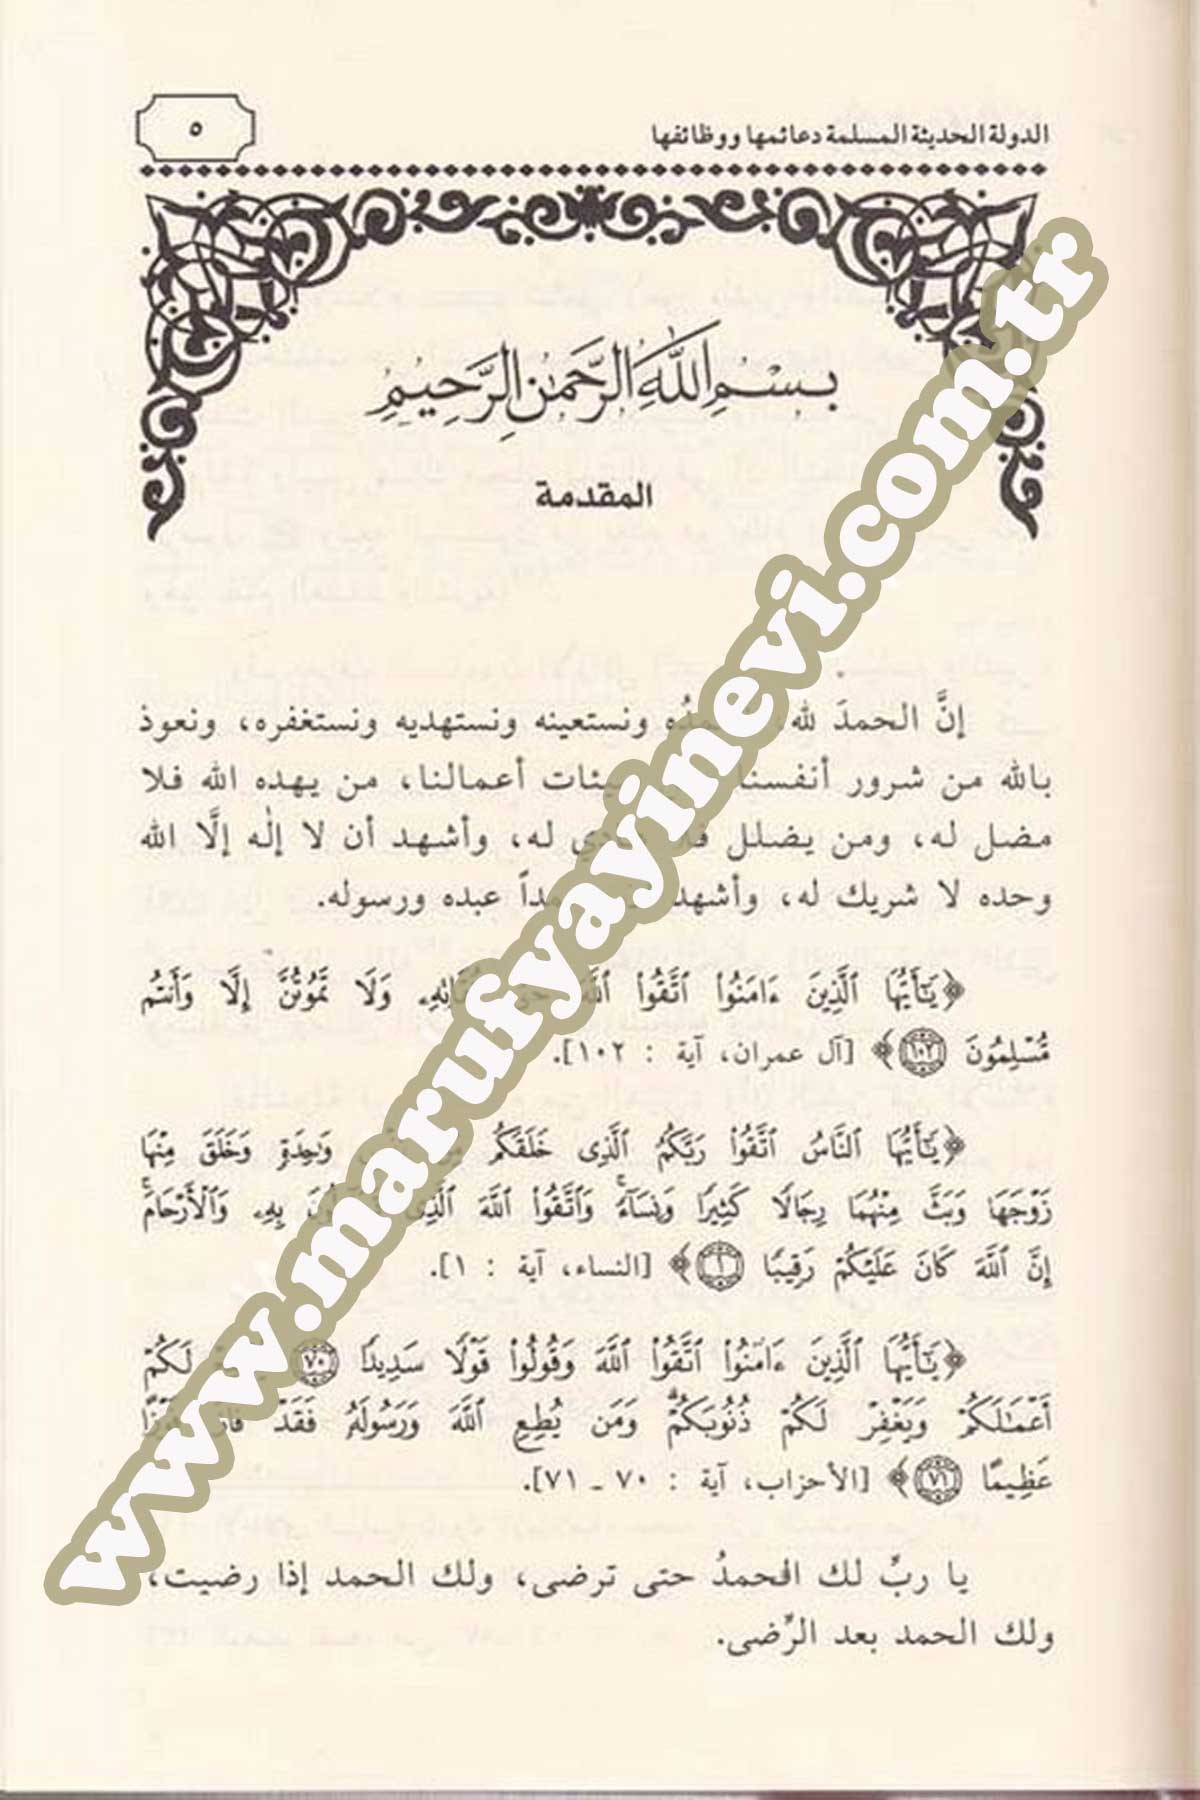 الدولة الحديثة المسلمة دعائمها ووظائفها
٥
بِسْمِ اللَّهِ الرَّحْمَٰنِ الرَّحِيمِ
المقدمة
إنَّ الحمدَ لله، ونستعينه ونستهديه ونستغفره، ونعوذ
بالله من شرور أنفسنا أعمالنا، من يهده الله فلا
مضل له، ومن يضلل له، وأشهد أن لا إلٰه إلَّا الله
وحده لا شريك له، وأشهد عبده ورسوله.
﴿يَٰٓأَيُّهَا ٱلَّذِينَ ءَامَنُوا۟ ٱتَّقُوا۟ ٱللَّهَ تُقَاتِهِۦ وَلَا تَمُوتُنَّ إِلَّا وَأَنتُم
مُّسْلِمُونَ ١٠٢﴾ [آل عمران، آية : ١٠٢].
﴿يَٰٓأَيُّهَا ٱلنَّاسُ ٱتَّقُوا۟ رَبَّكُمُ ٱلَّذِى خَلَقَكُم وَٰحِدَةٍ وَخَلَقَ مِنْهَا
زَوْجَهَا وَبَثَّ مِنْهُمَا رِجَالًا كَثِيرًا وَنِسَآءً ۚ وَٱتَّقُوا۟ ٱللَّهَ ٱلَّذِى بِهِۦ وَٱلْأَرْحَامَ ۚ
إِنَّ ٱللَّهَ كَانَ عَلَيْكُمْ رَقِيبًا ١﴾ [النساء، آية : ١].
﴿يَٰٓأَيُّهَا ٱلَّذِينَ ءَامَنُوا۟ ٱتَّقُوا۟ ٱللَّهَ وَقُولُوا۟ قَوْلًا سَدِيدًا ٧٠ لَكُمْ
أَعْمَٰلَكُمْ وَيَغْفِرْ لَكُمْ ذُنُوبَكُمْ ۗ وَمَن يُطِعِ ٱللَّهَ وَرَسُولَهُۥ فَقَدْ فَازَ فَوْزًا
عَظِيمًا ٧١﴾ [الأحزاب، آية : ٧٠ ـ ٧١].
يا ربِّ لك الحمدُ حتى ترضى، ولك الحمد إذا رضيت،
ولك الحمد بعد الرِّضى.
www.marufyayinevi.com.tr